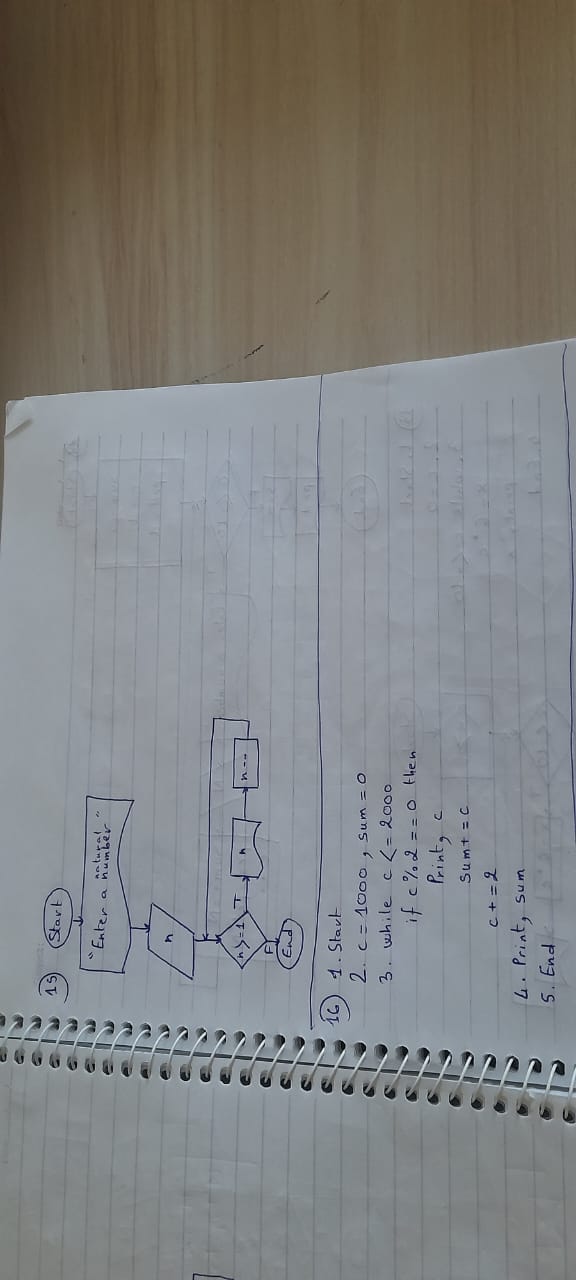 15) Start
"Enter a natural number"
n
n>=1 T n n--
F
End
16) 1. Start
2. c = 1000, sum = 0
3. while c <= 2000
if c%2 == 0 then
Print, c
sum+ = c
c + = 2
4. Print, sum
5. End